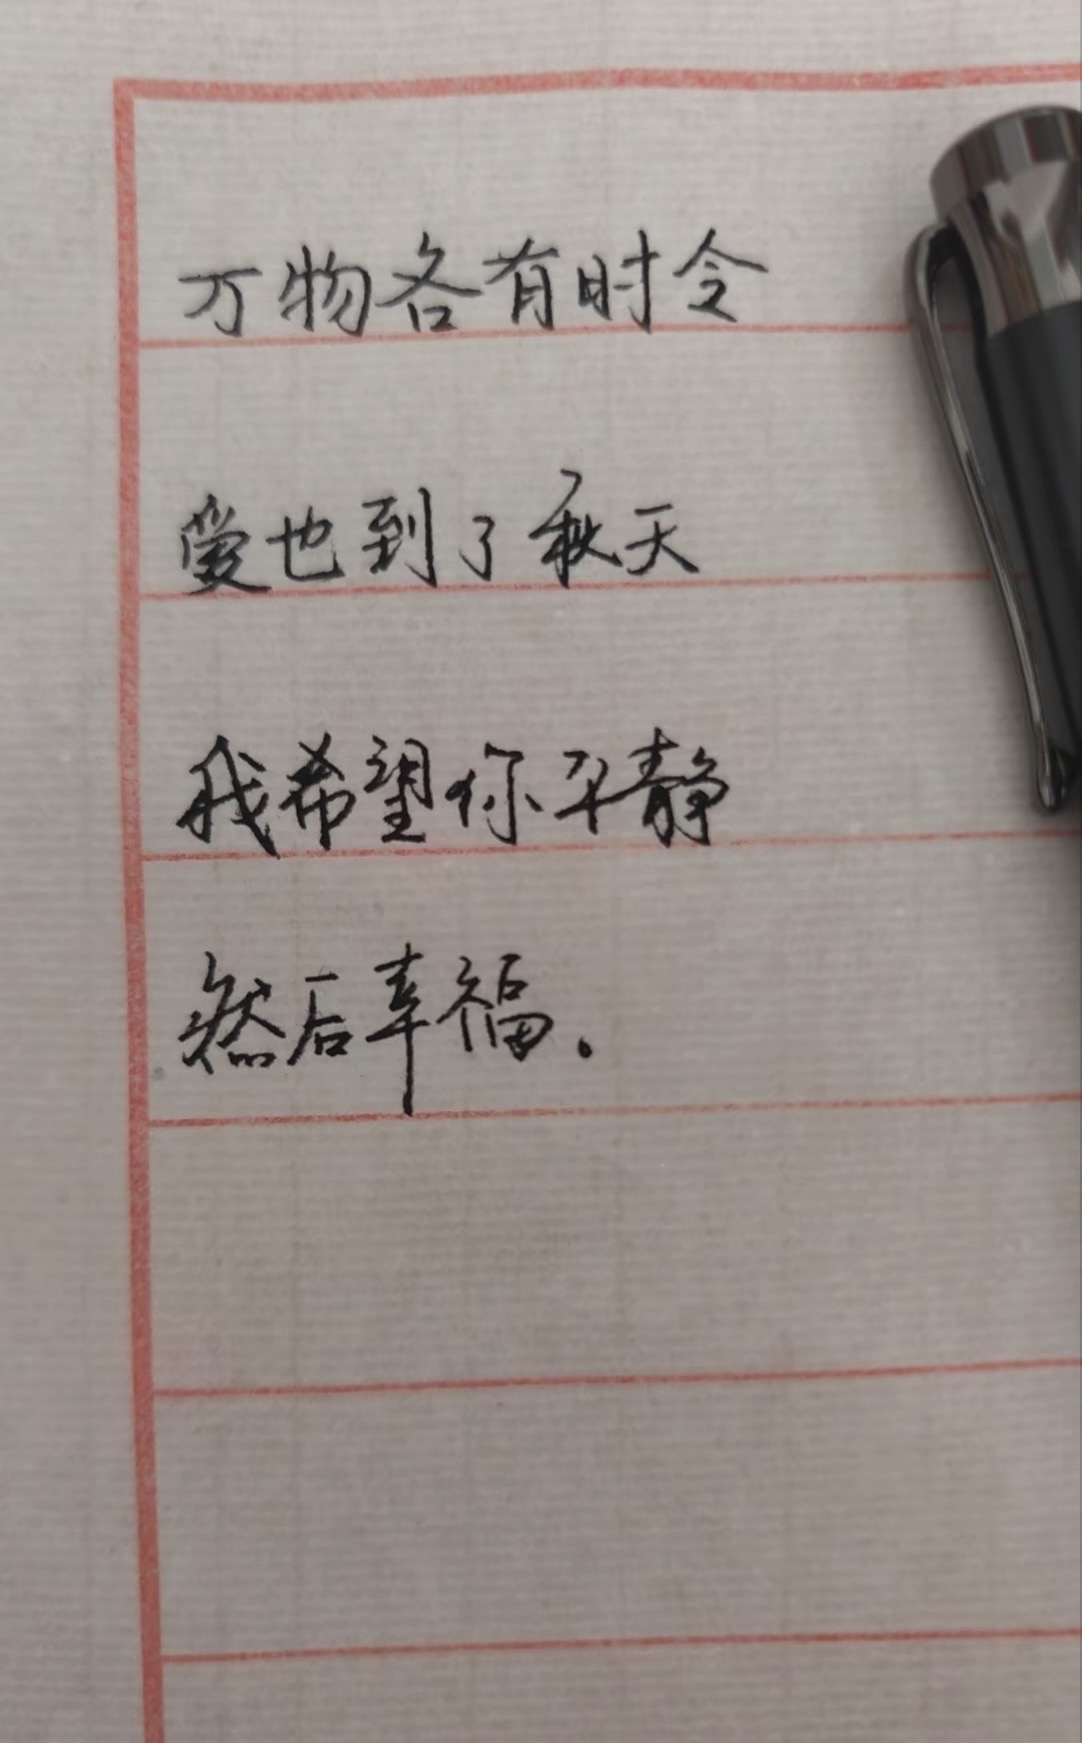 万物各有时令
爱也到了秋天
我希望你平静
然后幸福.